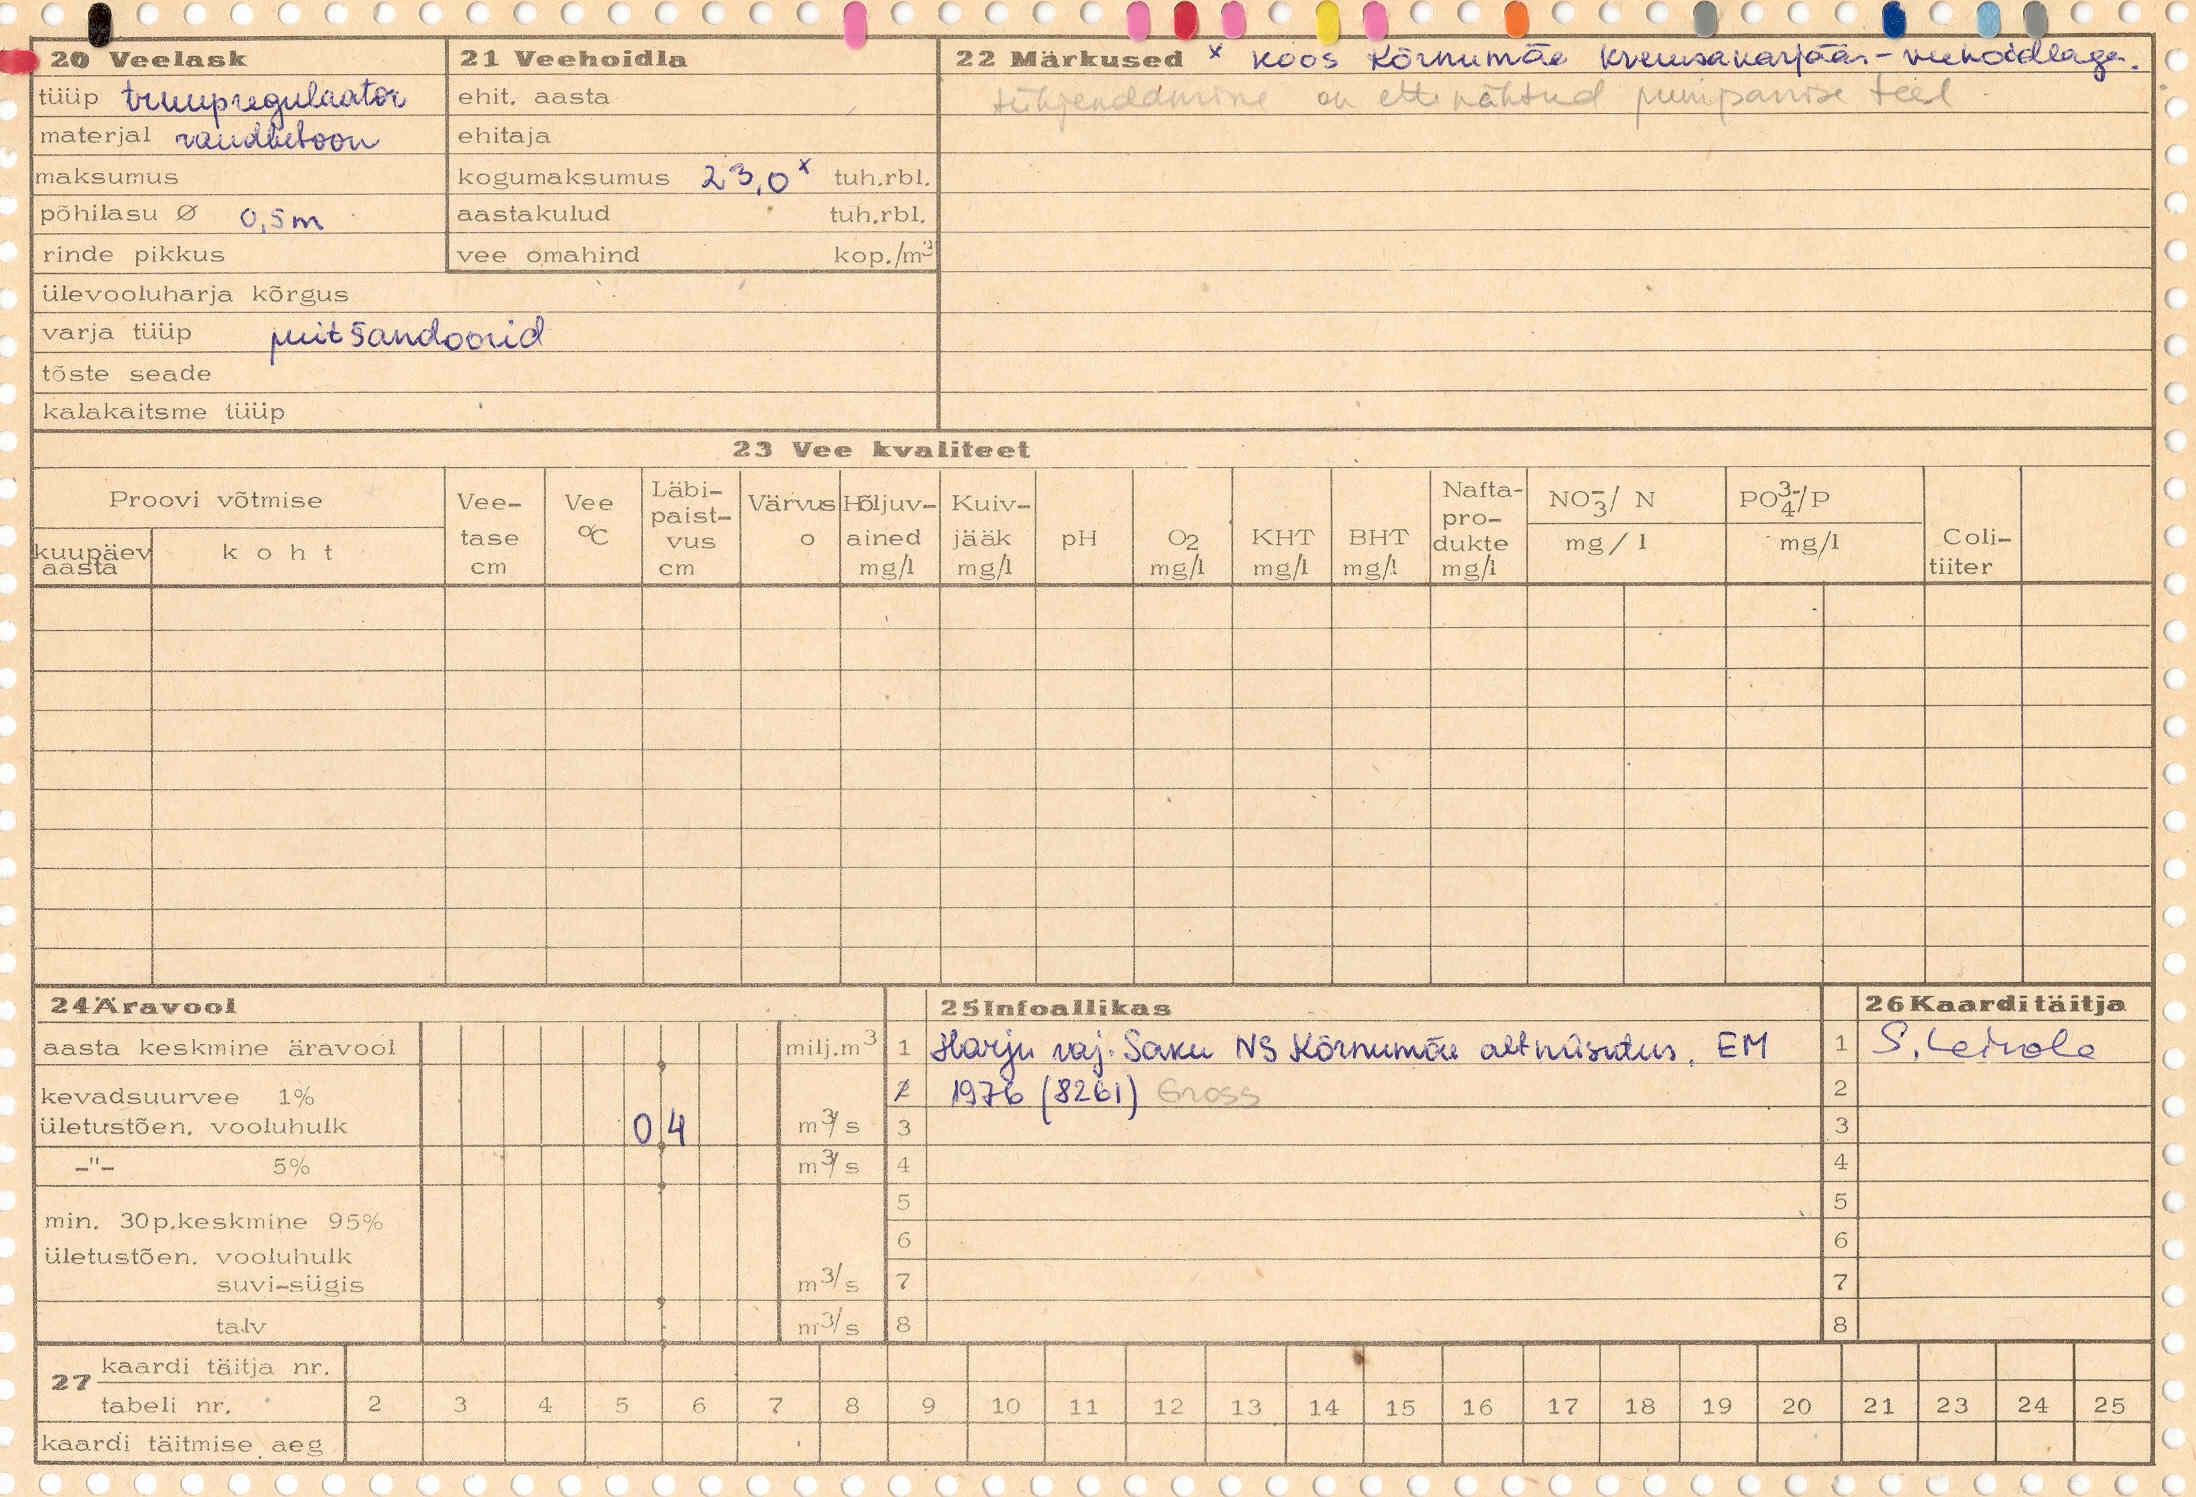 20 Veelask
tüüp truupregulaator
materjal raudbetoon
maksumus
põhilasu Ø 0,5m
rinde pikkus
ülevooluharja kõrgus
varja tüüp puitšandoorid
tõste seade
kalakaitsme tüüp
21 Veehoidla
ehit. aasta
ehitaja
kogumaksumus 23,0 x tuh.rbl.
aastakulud tuh.rbl.
vee omahind kop./m3
22 Märkused x koos Kõrnumäe kruusakarjäär-veehoidlaga.
tühjendamine on ette nähtud pumpamise teel
23 Vee kvaliteet
Proovi võtmise
kuupäev aasta
koht
Vee-tase cm
Vee °C
Läbi-paist-vus cm
Värvus o
Hõljuv-ained mg/l
Kuiv-jääk mg/l
pH
O2 mg/l
KHT mg/l
BHT mg/l
Nafta-pro-dukte mg/l
NO3-/ N
mg/l
PO4 3-/P
mg/l
Coli-tiiter
24 Äravool
aasta keskmine äravool milj.m3
kevadsuurvee 1%
ületustõen. vooluhulk 0 4 m3/s
-"- 5% m3/s
min. 30p.keskmine 95%
ületustõen. vooluhulk
suvi-sügis m3/s
talv m3/s
25 Infoallikas
1 Harju raj. Saku NS Kõrnumäe altniisutus. EM
2 1976 (8261) Gross
3
4
5
6
7
8
26 Kaardi täitja
1 S. Leivola
2
3
4
5
6
7
8
27 kaardi täitja nr.
tabeli nr. 2 3 4 5 6 7 8 9 10 11 12 13 14 15 16 17 18 19 20 21 23 24 25
kaardi täitmise aeg